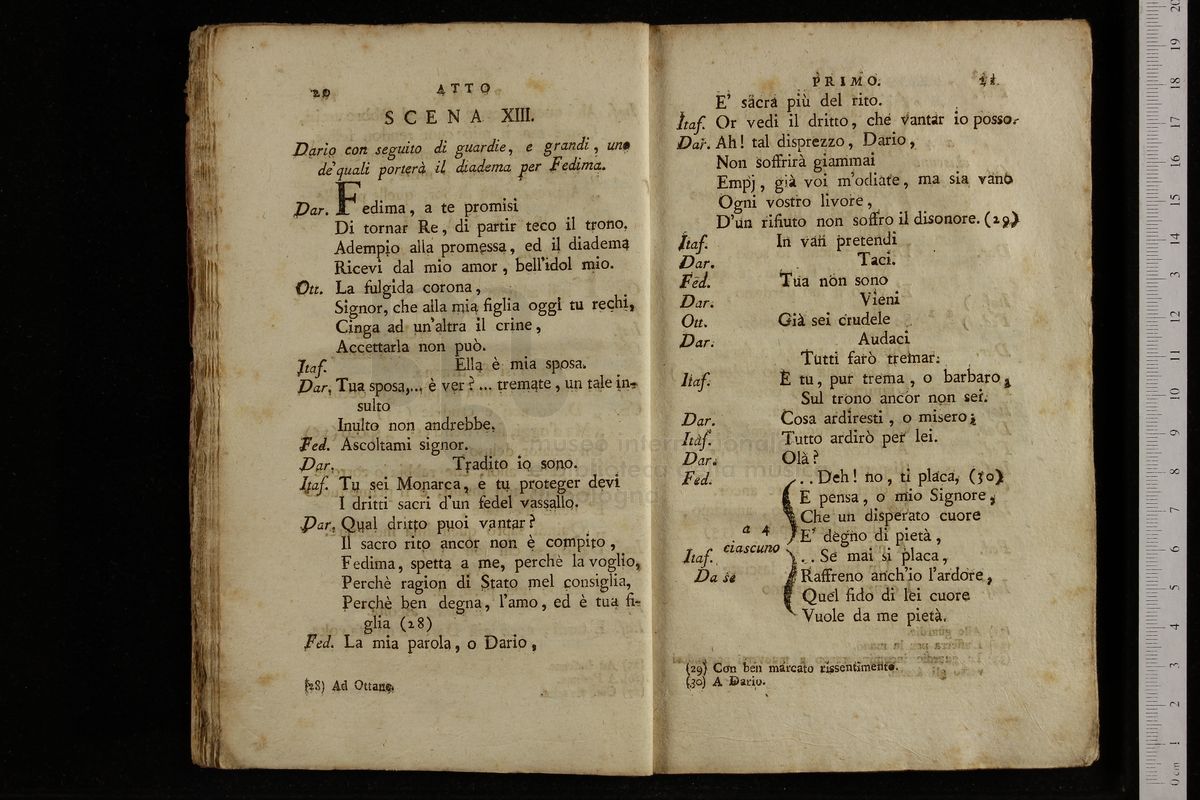 20 ATTO
SCENA XIII.
Dario con seguito di guardie, e grandi, uno
de' quali porterà il diadema per Fedima.
Dar. Fedima, a te promisi
Di tornar Re, di partir teco il trono.
Adempio alla promessa, ed il diadema
Ricevi dal mio amor, bell'idol mio.
Ott. La fulgida corona,
Signor, che alla mia figlia oggi tu rechi,
Cinga ad un'altra il crine,
Accettarla non può.
Itaf. Ella è mia sposa.
Dar. Tua sposa,... è ver? ... tremate, un tale in-
sulto
Inulto non andrebbe.
Fed. Ascoltami signor.
Dar. Tradito io sono.
Itaf. Tu sei Monarca, e tu proteger devi
I dritti sacri d'un fedel vassallo.
Dar. Qual dritto puoi vantar?
Il sacro rito ancor non è compito,
Fedima, spetta a me, perchè la voglio,
Perchè ragion di Stato mel consiglia,
Perchè ben degna, l'amo, ed è tua fi-
glia (28)
Fed. La mia parola, o Dario,
(28) Ad Ottane.
PRIMO. 21
E' sacra più del rito.
Itaf. Or vedi il dritto, che vantar io posso.
Dar. Ah! tal disprezzo, Dario,
Non soffrirà giammai
Empj, già voi m'odiate, ma sia vano
Ogni vostro livore,
D'un rifiuto non soffro il disonore. (29)
Itaf. In van pretendi
Dar. Taci.
Fed. Tua non sono
Dar. Vieni
Ott. Già sei crudele
Dar. Audaci
Tutti farò tremar.
Itaf. E tu, pur trema, o barbaro;
Sul trono ancor non sei.
Dar. Cosa ardiresti, o misero;
Itaf. Tutto ardirò per lei.
Dar. Olà?
Fed. ..Deh! no, ti placa, (30)
E pensa, o mio Signore,
Che un disperato cuore
a 4 E' degno di pietà,
ciascuno
Itaf. .. Se mai si placa,
Da se Raffreno anch'io l'ardore,
Quel fido di lei cuore
Vuole da me pietà.
(29) Con ben marcato rissentimento.
(30) A Dario.
museo internazionale
biblioteca della musica
bologna